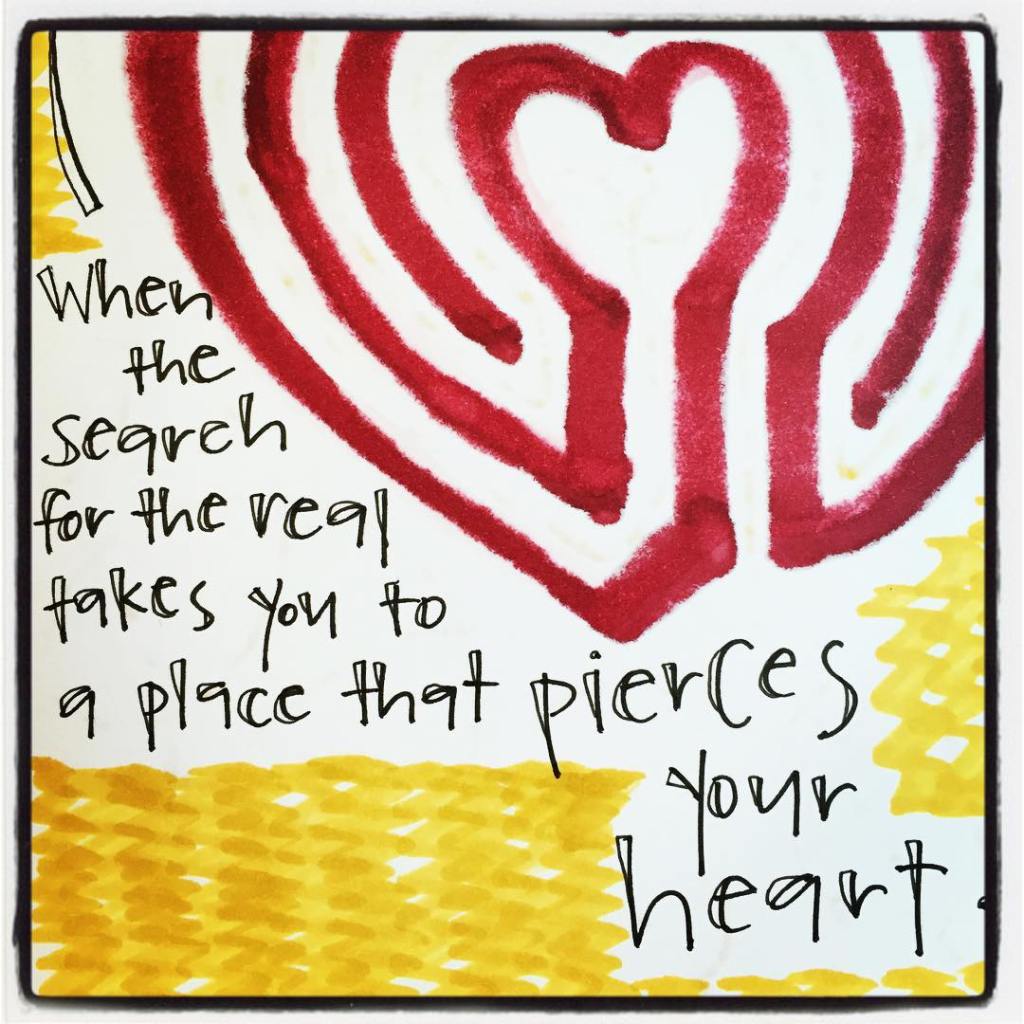 When
the
search
for the real
takes you to
a place that pierces
your
heart.